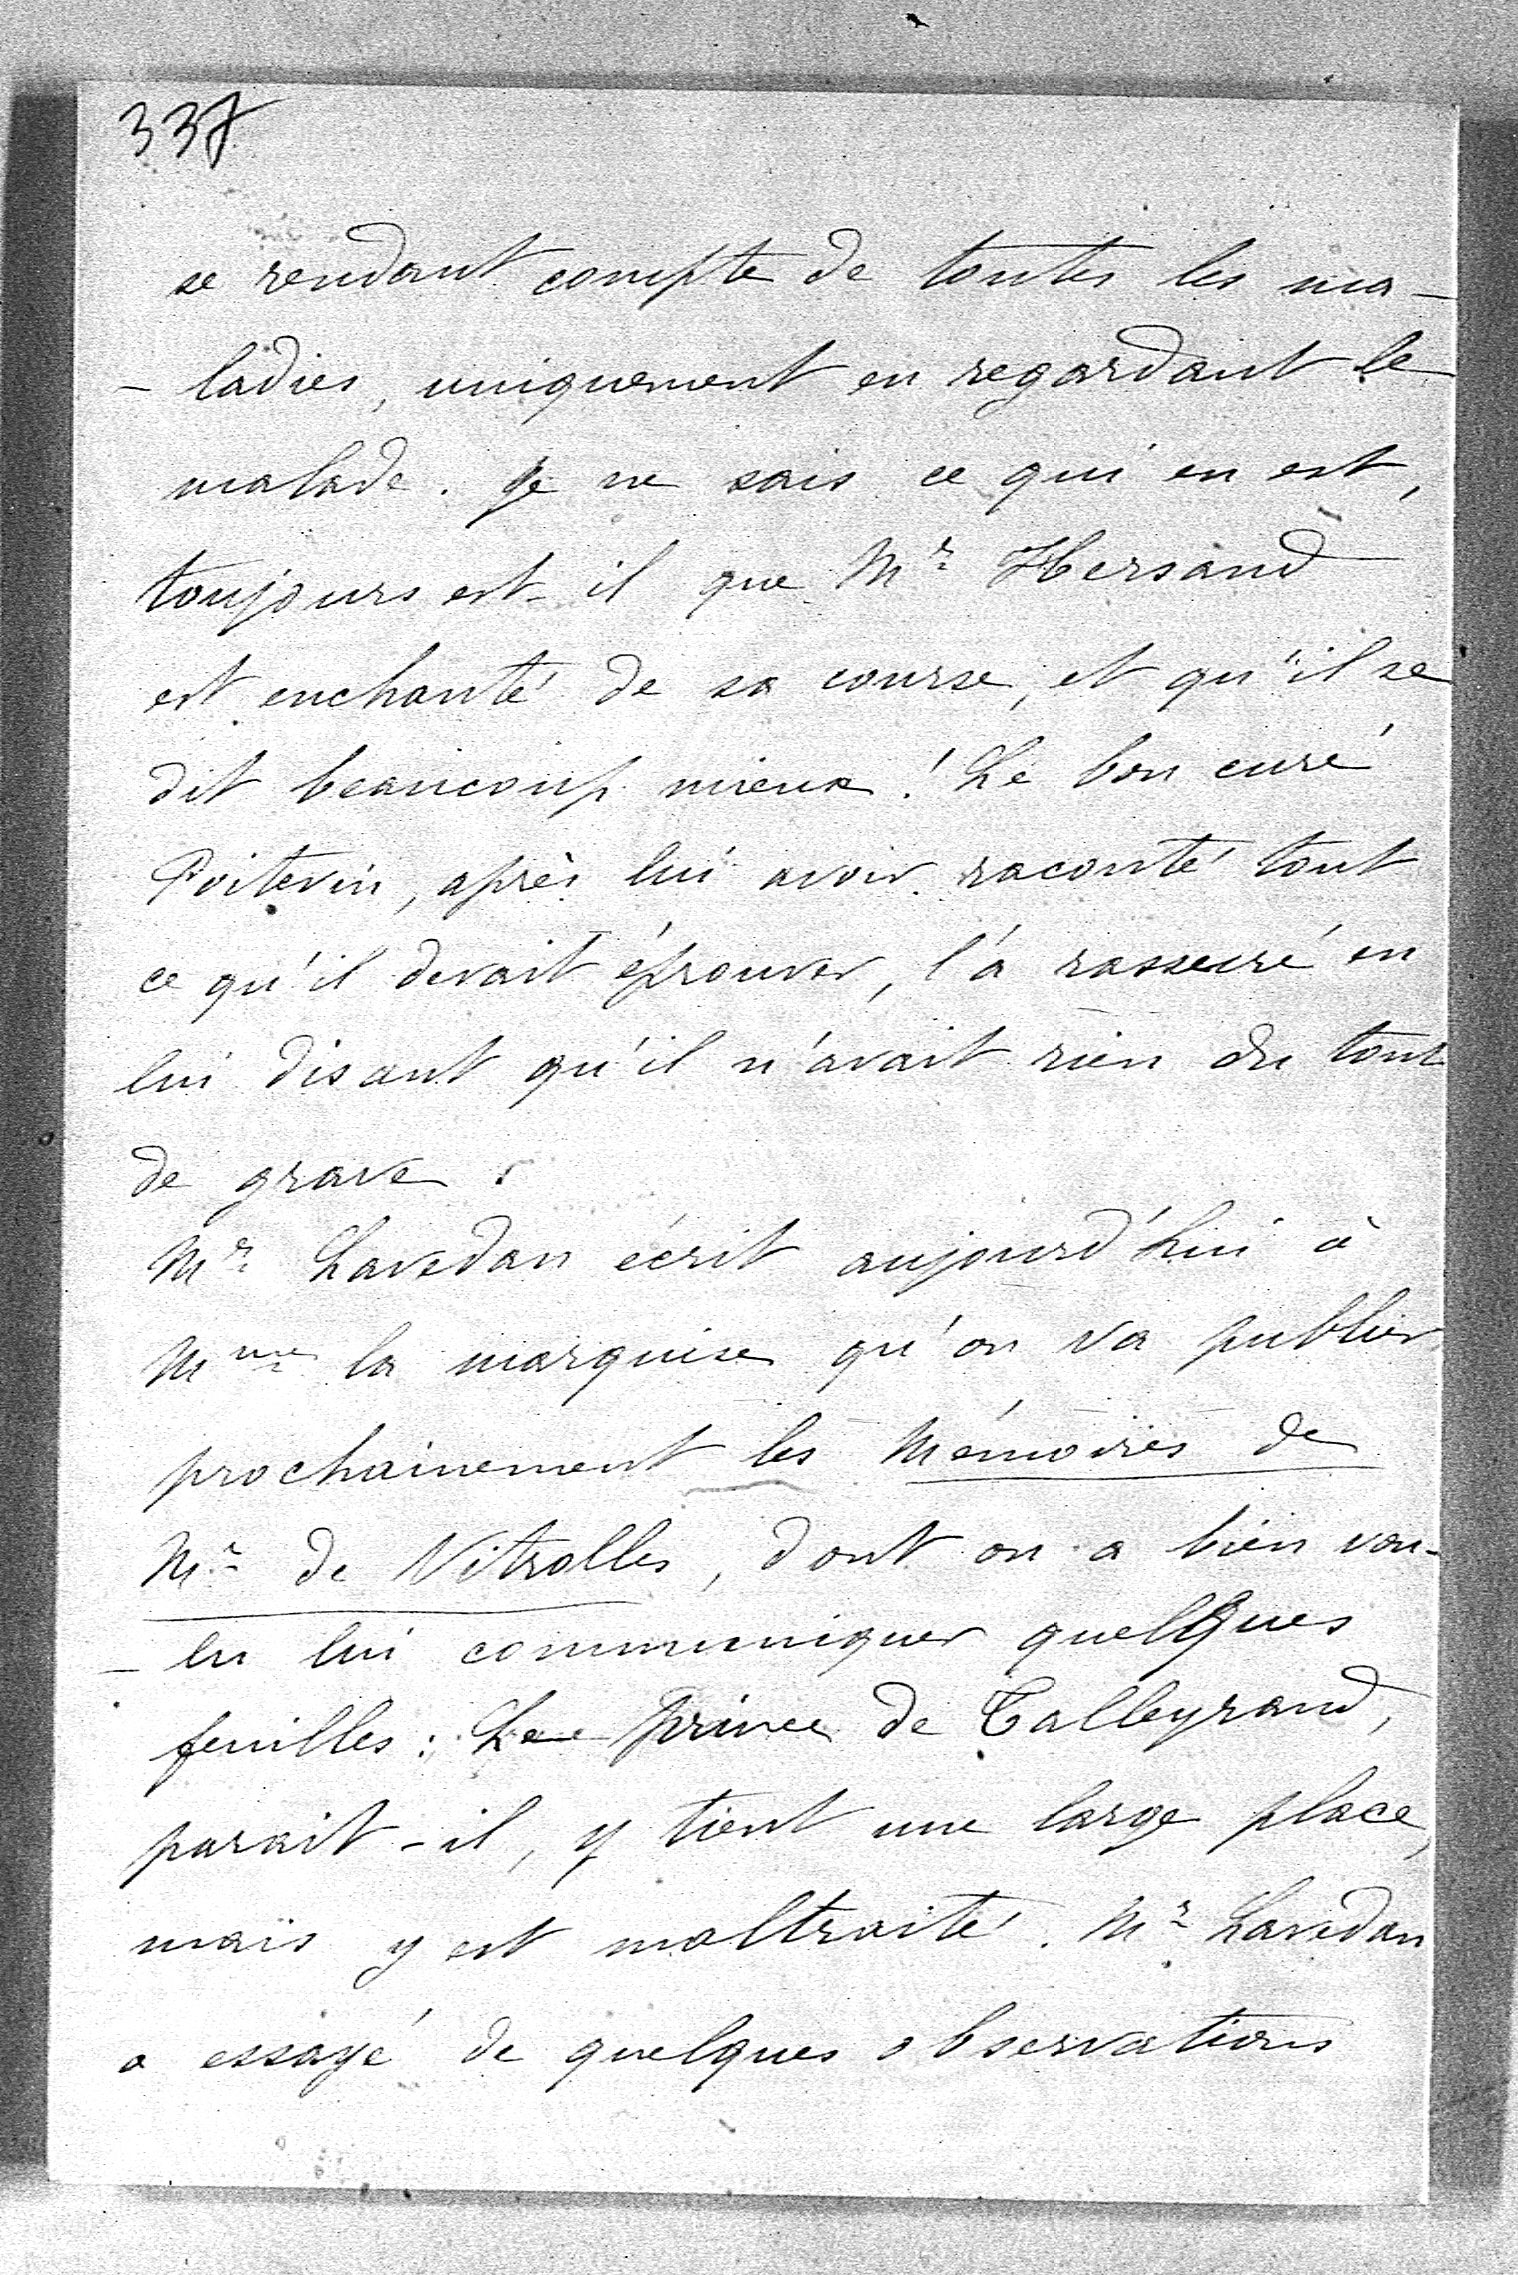 337
se rendant compte de toutes les ma-
- ladies, uniquement en regardant le
malade. Je ne sais ce qui en est,
toujours est-il que Mr Hersand
est enchanté de sa course, et qu'il se
dit beaucoup mieux ! Le bon curé
Poitevin, après lui avoir raconté tout
ce qu'il devait éprouver, l'a rassuré en
lui disant qu'il n'avait rien du tout
de grave.
Mr Lavedan écrit aujourd'hui à
Mme la marquise qu'on va publier
prochainement les Mémoires de
Mr de Vitrolles, dont on a bien vou-
- lu lui communiquer quelques
feuilles : Le Prince de Talleyrand,
parait-il, y tient une large place,
mais y est maltraité. Mr Lavedan
a essayé de quelques observations